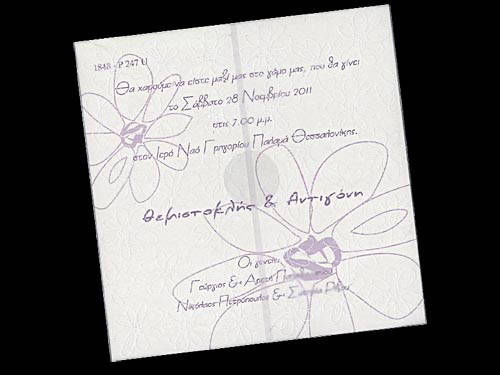 1843 - P 247 U
Θα χαρούμε να είστε μαζί μας στο γάμο μας, που θα γίνει
το Σάββατο 28 Νοεμβρίου 2011
στις 7.00 μ.μ.
στον Ιερό Ναό Γρηγορίου Παλαμά Θεσσαλονίκης.
Θεμιστοκλής & Αντιγόνη
Οι γονείς
Γιώργιος &
Νικόλαος Πετρόπουλος &